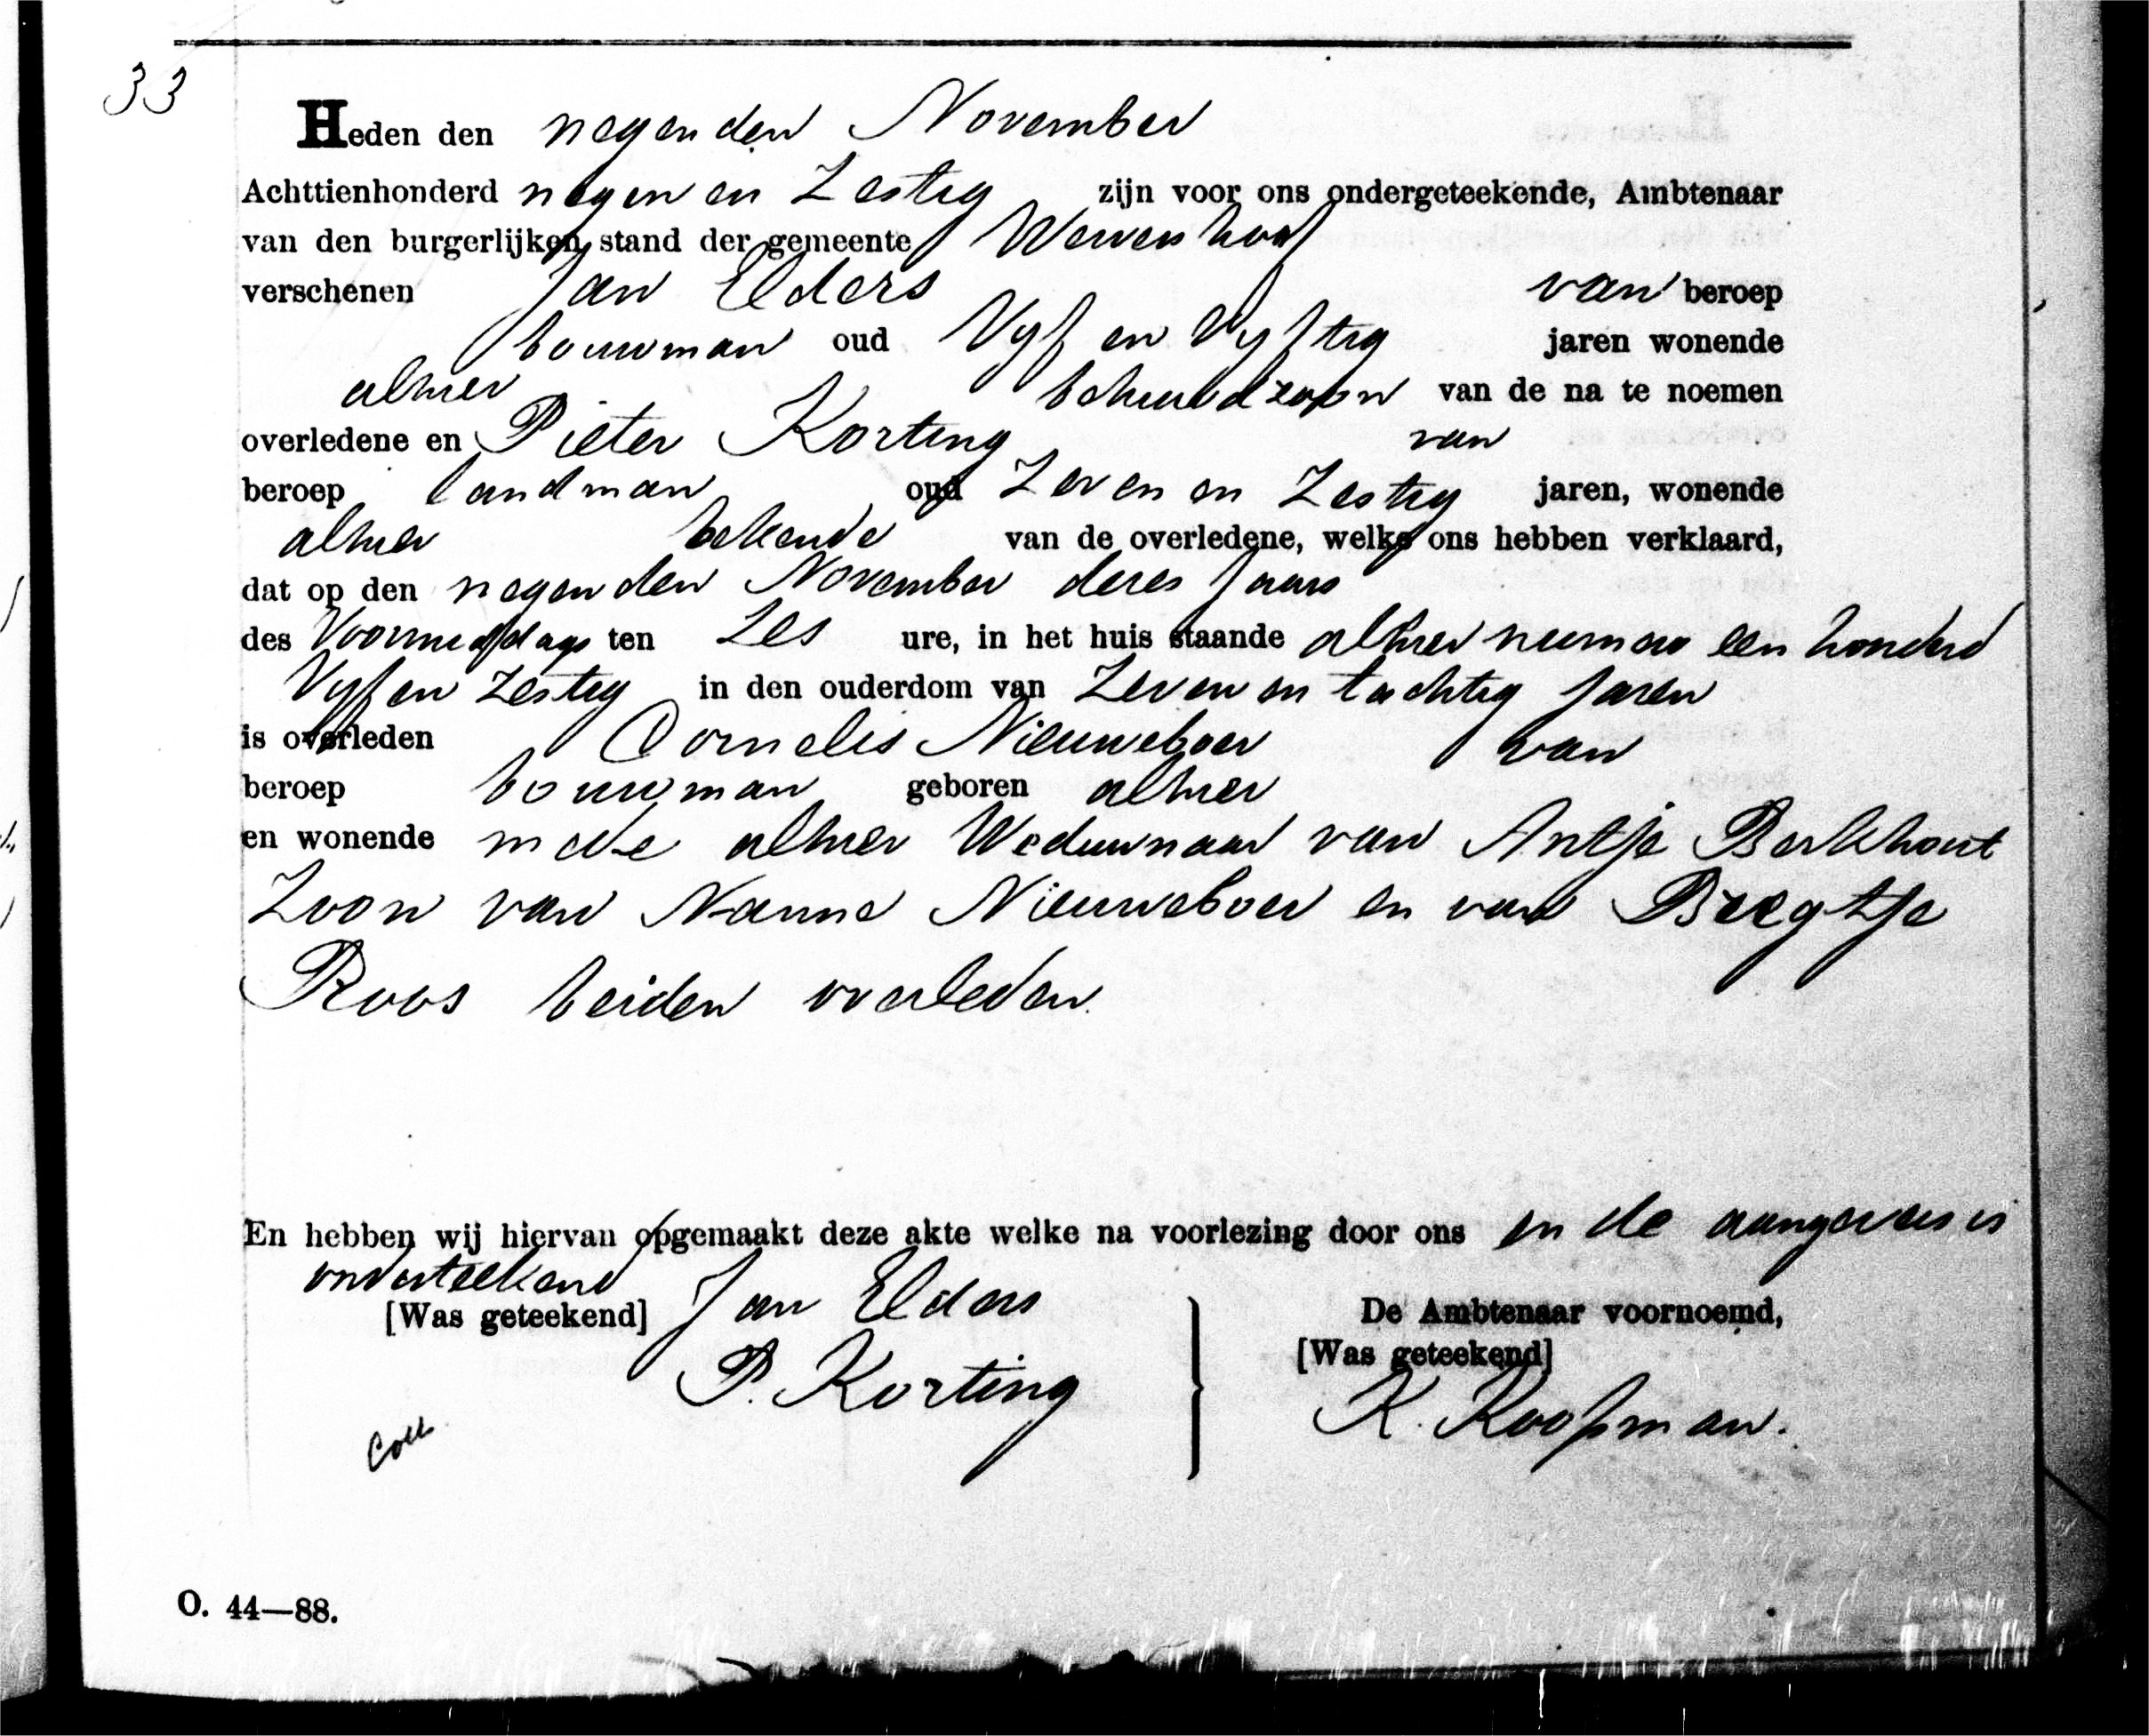 33
Heden den negenden November
Achttienhonderd negen en Zestig zijn voor ons ondergeteekende, Ambtenaar
van den burgerlijken stand der gemeente Wervershoof
verschenen Jan Elders van beroep
bouwman oud Vyf en Vyftig jaren wonende
alhier behuwdzoon van de na te noemen
overledene en Pieter Korting van
beroep landman oud Zeven en Zestig jaren, wonende
alhier bekende van de overledene, welke ons hebben verklaard,
dat op den negenden November dezes Jaars
des Voormiddags ten Zes ure, in het huis staande alhier nummer een honderd
Vyf en Zestig in den ouderdom van Zeven en tachtig Jaren
is overleden Cornelis Nieuweboer van
beroep bouwman geboren alhier
en wonende mede alhier Weduwnaar van Antje Berkhout
Zoon van Nanne Nieuweboer en van Breegtje
Roos beiden overleden.
En hebben wij hiervan opgemaakt deze akte welke na voorlezing door ons en de aangevers is
onderteekend
[Was geteekend] Jan Elders
De Ambtenaar voornoemd,
[Was geteekend]
P. Korting
K. Koopman.
Coll
O. 44—88.